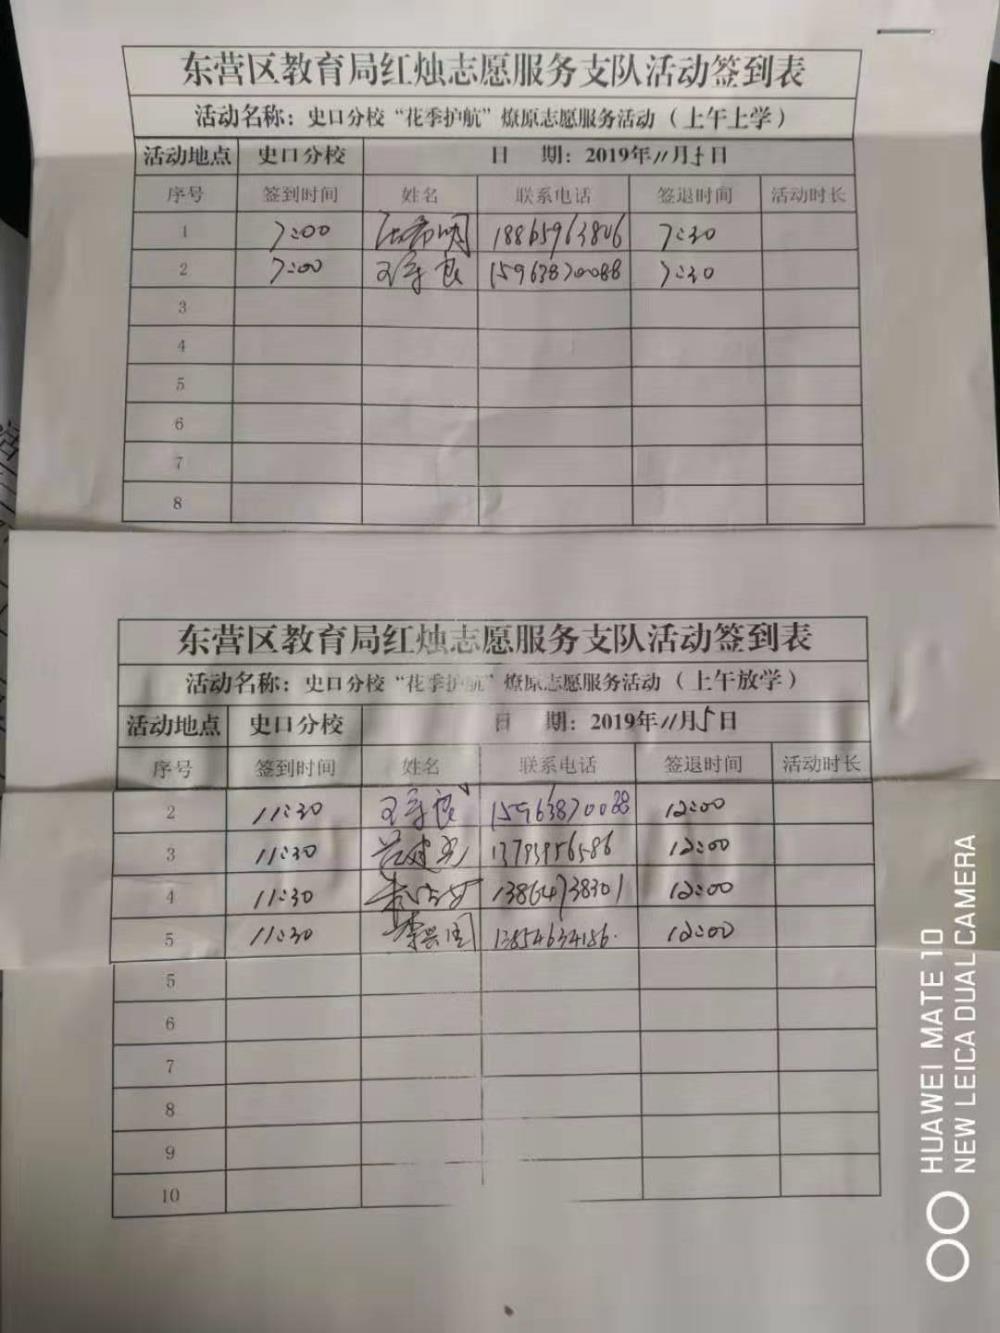 东营区教育局红烛志愿服务支队活动签到表
活动名称：史口分校“花季护航”燎原志愿服务活动（上午上学）
活动地点 史口分校 日 期：2019年11月5日
序号 签到时间 姓名 联系电话 签退时间 活动时长
1 7:00 18865963806 7:30
2 7:00 15963870088 7:30
3
4
5
6
7
8
东营区教育局红烛志愿服务支队活动签到表
活动名称：史口分校“花季护航”燎原志愿服务活动（上午放学）
活动地点 史口分校 日 期：2019年11月5日
序号 签到时间 姓名 联系电话 签退时间 活动时长
2 11:30 15963870088 12:00
3 11:30 13793956586 12:00
4 11:30 13864738301 12:00
5 11:30 李兴国 13854634186 12:00
5
6
7
8
9
10
HUAWEI MATE 10
NEW LEICA DUAL CAMERA